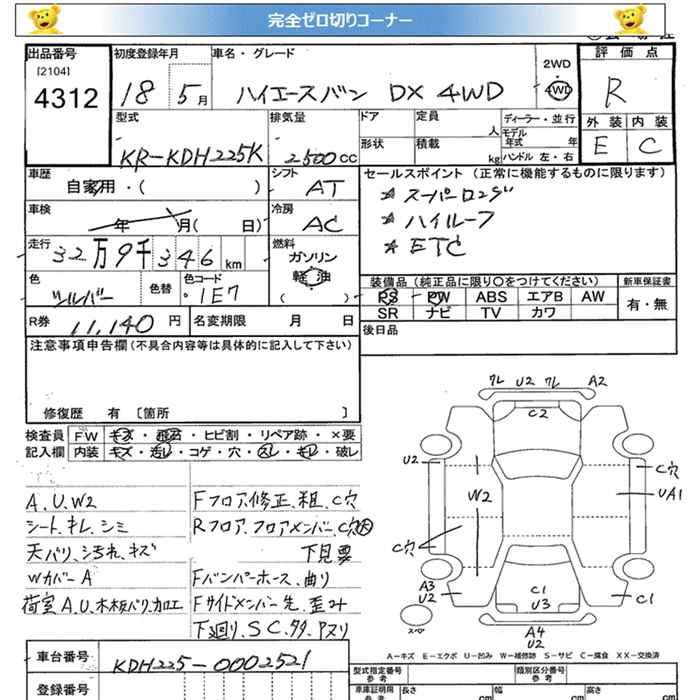 完全ゼロ切りコーナー
出品番号 初度登録年月 車名・グレード 2WD 評価点
[2104]
4312 18 5月 ハイエースバン DX 4WD 4WD R
型式 排気量 ドア 定員 人 ディーラー・並行 外装 内装
モデル年式 年
KR-KDH225K 2500cc 形状 積載 kg ハンドル 左・右 E C
車歴 シフト セールスポイント (正常に機能するものに限ります)
自家用・( ) AT スーパーロング
車検 冷房 ハイルーフ
年 月( 日) AC ETC
走行 燃料
32万9千346km ガソリン
軽油
色 色替 色コード ( )
シルバー 1E7
装備品 (純正品に限り○をつけてください) 新車保証書
PS PW ABS エアB AW 有・無
SR ナビ TV カワ
R券 11,140円 名変期限 月 日 後日品
注意事項申告欄(不具合内容等は具体的に記入して下さい)
修復歴 有 [箇所 ]
検査員 FW キズ・飛石・ヒビ割・リペア跡・×要
記入欄 内装 キズ・汚レ・コゲ・穴・スレ・キレ・破レ
A.U.W2
シート.キレ.シミ
天バリ.汚れ.キズ
WカバーA
荷室A.U.木板バリ.加工
Fフロア.修正.粗.C穴
Rフロア.フロアメンバー.C穴大
下見要
Fバンパーホース.曲り
Fサイドメンバー先.歪み
下廻り.SC.タタ.アヌリ
ワレ U2 ワレ A2
C2
U2 C穴
W2 UA1
C穴
A3
U2 C1 C1
U3
スペア A4
U2
A-キズ E-エクボ U-凹み W-補修跡 S-サビ C-腐食 XX-交換済
車台番号 KDH225-0002521
登録番号
型式指定番号 参考 類別区分番号 参考
車庫証明用 参考 長さ cm 幅 cm 高さ cm